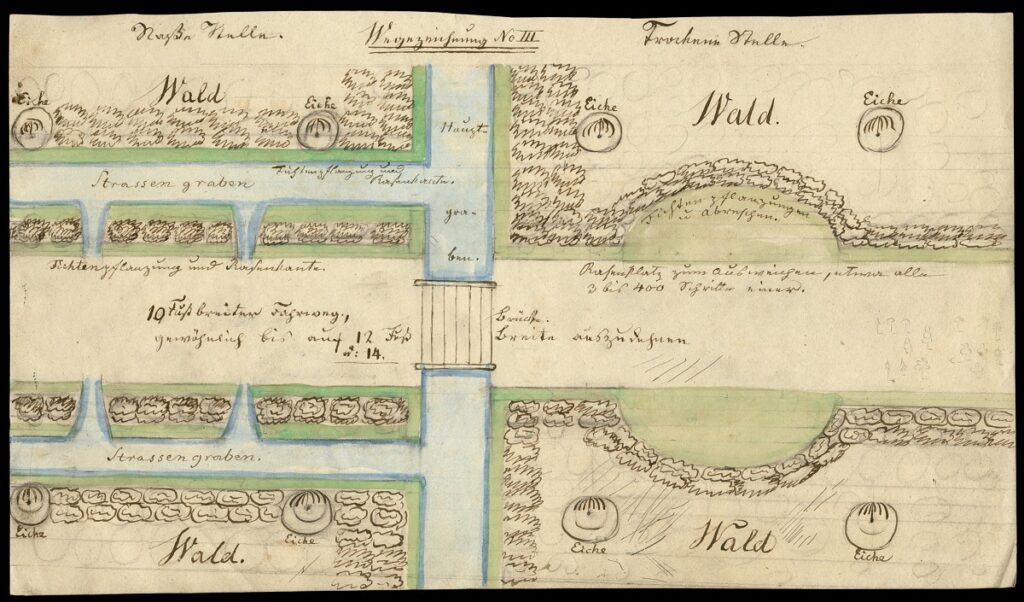 Naße Stelle.
Wegezeichnung No III
Trockene Stelle.
Wald
Eiche
Eiche
Haupt-
gra-
ben.
Strassen graben
Fichtenpflanzung und
Rasenkante.
Wald.
Eiche
Eiche
Fichtenpflanzungen
u
Fichtenpflanzung und Rasenkante.
Rasenplatz zum Ausweichen, etwa alle
3 bis 400 Schritte einer.
10 Fuß breiter Fahrweg.,
gewöhnlich bis auf 12 Fuß
u: 14.
Brücke.
Breite auszudehnen
Strassen graben.
Eiche
Eiche
Wald.
Eiche
Wald
Eiche